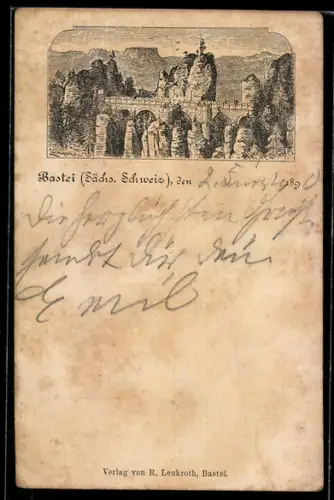 Bastei (Sächs. Schweiz), den 2. 189
Die herzlichsten Grüße
sendet Dir dein
Emil
Verlag von R. Leukroth, Bastei.